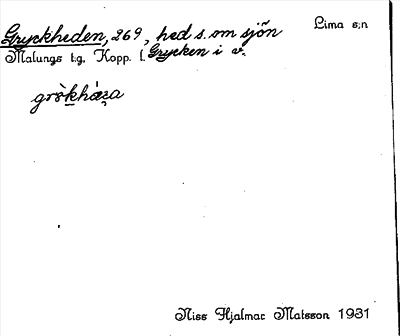 Gryckheden, 269, hed s. om sjön Lima s:n
Malungs t.g, Kopp. l. Grycken i v.
grỳkhæ̀ꝛa
Niss Hjalmar Matsson 1931